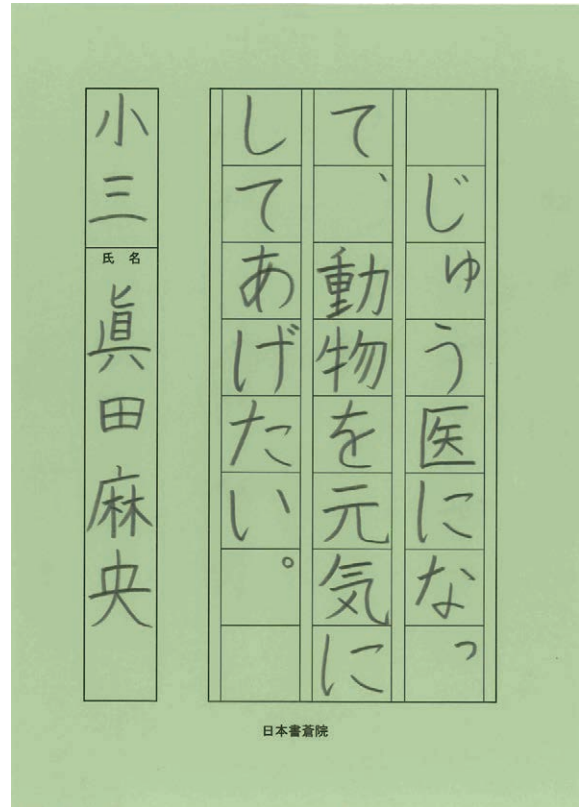 じゅう医になっ
て、動物を元気に
してあげたい。
小三
氏名
眞田麻央
日本書蒼院